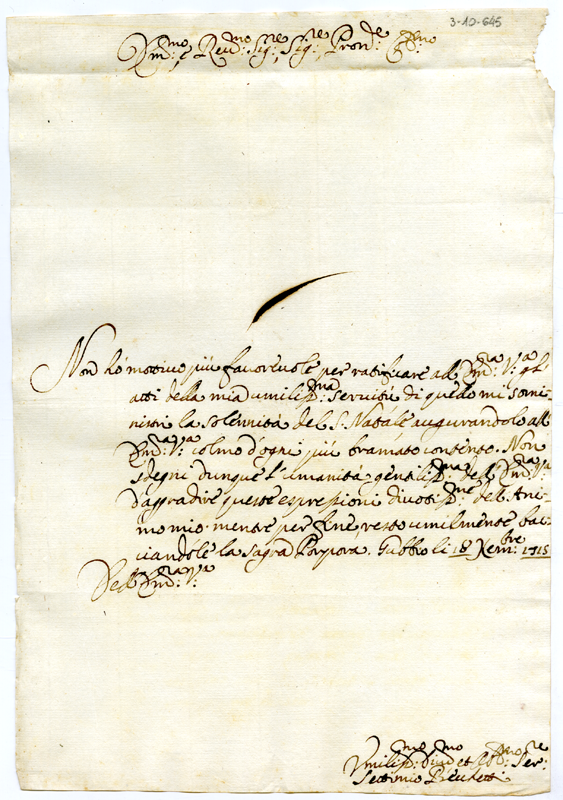 3-10-645
Em:mo e Reu:mo Sig:re, Sig:re Pron
Non hò mottiuo più fauoreuole per ratificare all'Em:za V:a gl'
atti della mia umiliss:ma seruitù di quello mi somi-
nistri la solennità del S. Natale augurandolo all'
Em:za V:a colmo d'ogni più bramato contento. Non
sdegni dunque l'umanità gentiliss:ma dell'Em:za V:a
d'aggradire queste espressioni diuotiss:me del Ani-
mo mio mentre per fine, resto umilmente bac-
ciandole la sagra Porpora. Gubbio li 18 Xem:bre 1715
Dell'Em:za V:a
Vmiliss:mo Diu:mo et Ser:re
Settimio